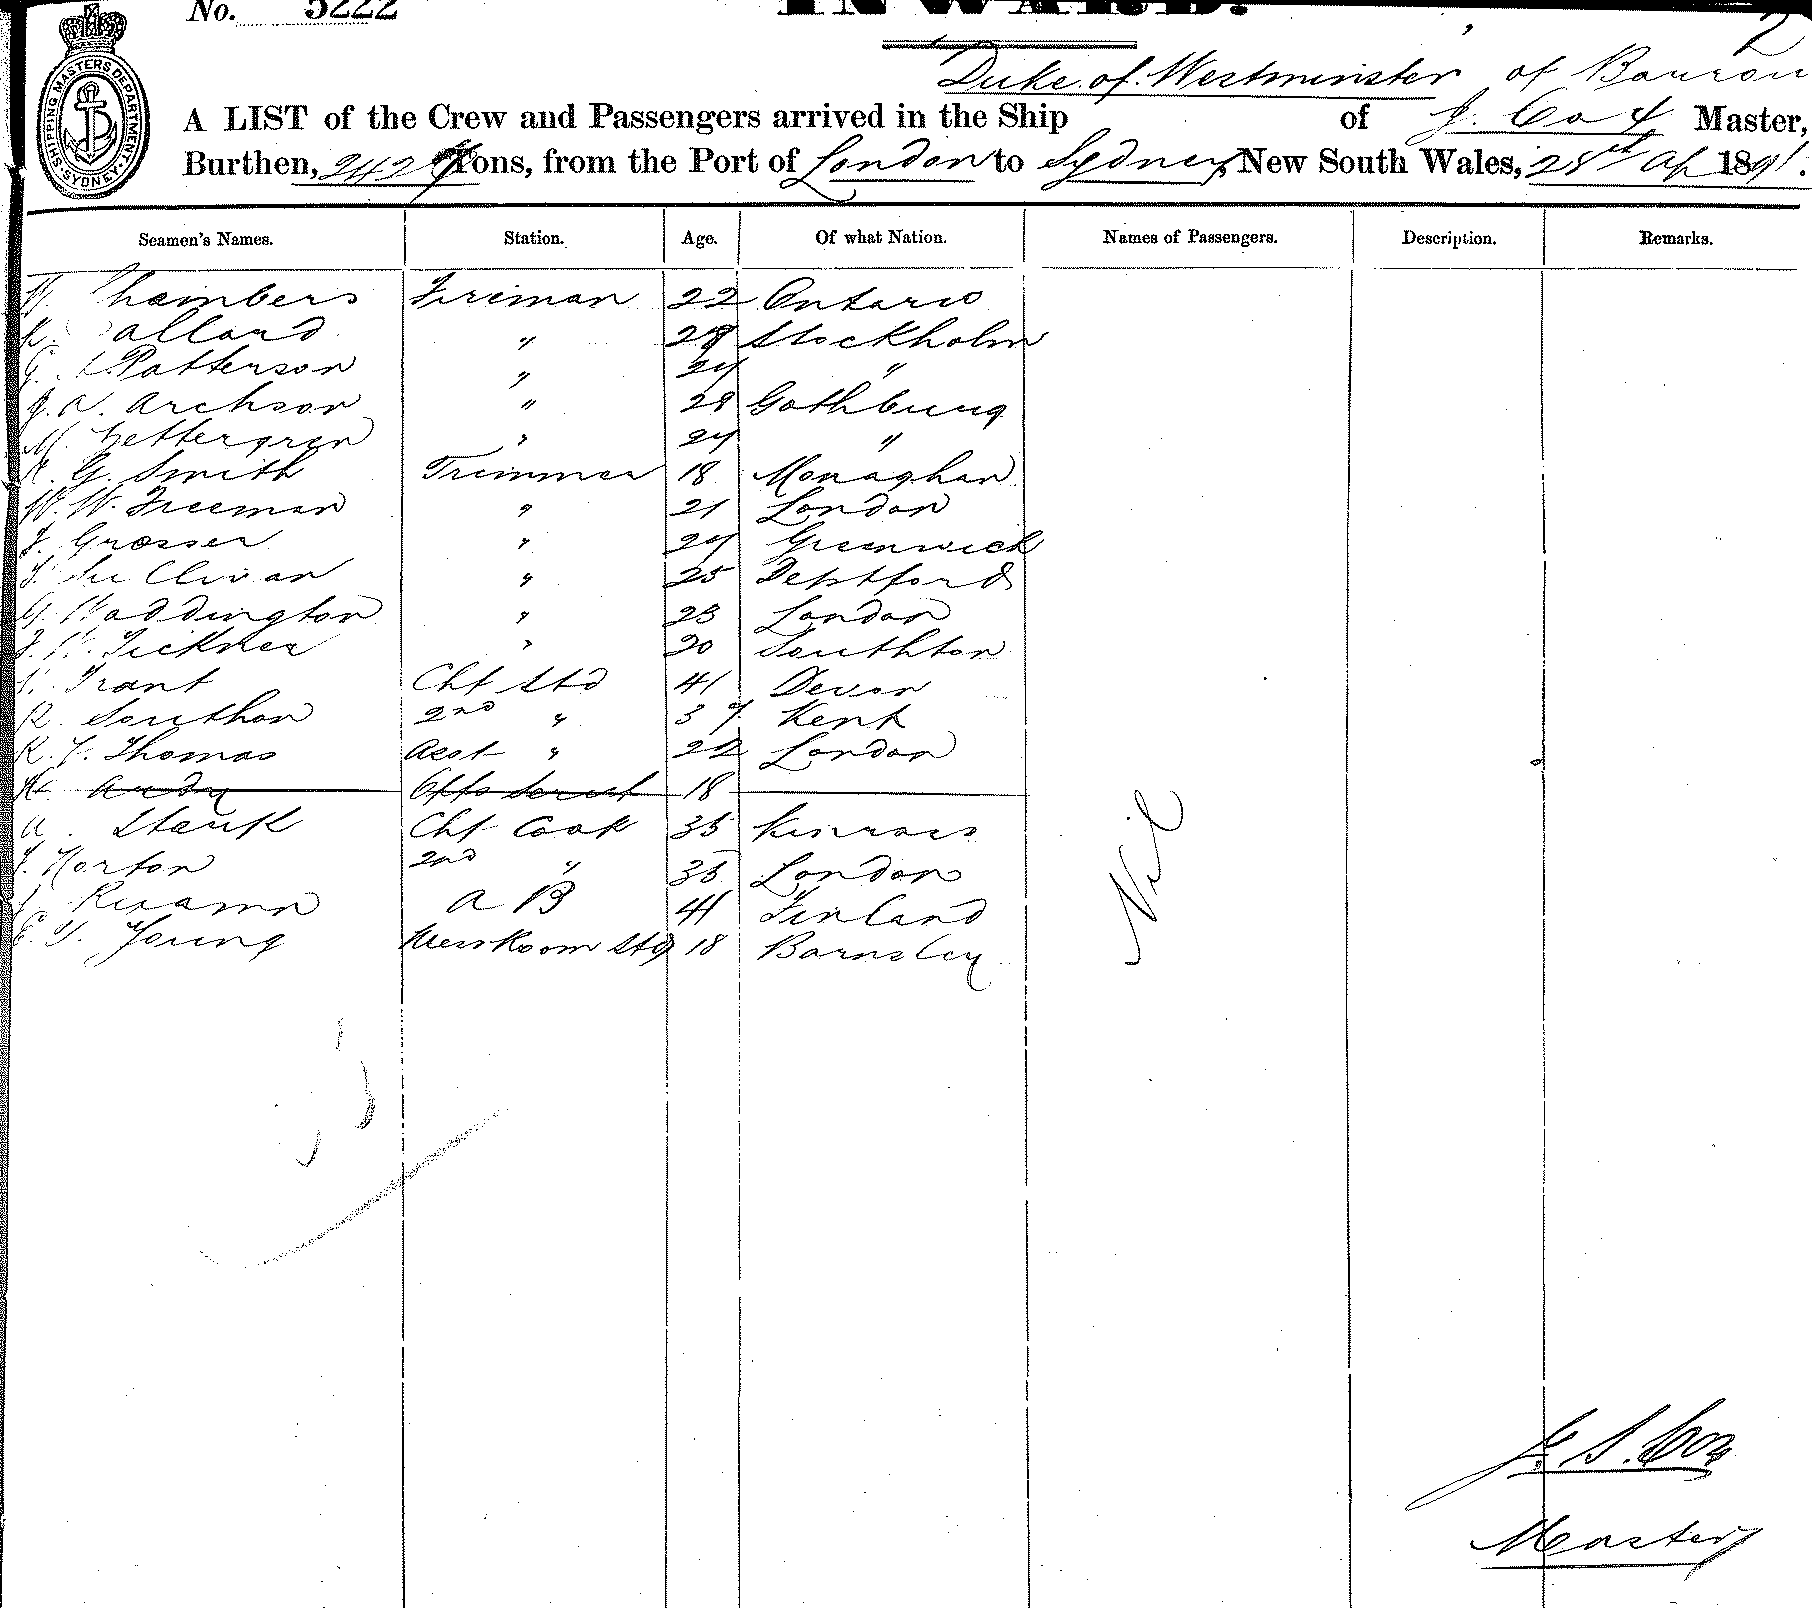 No. 5222
INWARD.
2
Duke of Westminster of Barrow
A LIST of the Crew and Passengers arrived in the Ship of J. Cox Master,
Burthen, 2427 Tons, from the Port of London to Sydney, New South Wales, 28th Ap 1891.
SHIPPING MASTERS DEPARTMENT SYDNEY
Seamen's Names. Station. Age. Of what Nation. Names of Passengers. Description. Remarks.
hambers Fireman 22 Ontario
alland " 28 Stockholm
G. Patterson " 24 "
A. Archson " 28 Gothburg
M. Zettergren " 24 "
G. Smith Trimmer 18 Monaghan
W. W. Freeman " 21 London
J. Grosser " 24 Greenwich
Sullivan " 25 Deptford
G. Waddington " 23 London
Tickner " 20 Southton
Trant Chf Std 41 Devon
R. Southon 2nd " 37 Kent
R. Thomas Asst " 22 London
18
A. Chf Cook 35 Kinross
Norton 2nd " 35 London
A B 41 Finland
E. Young Mess Room Std 18 Barnsley
Nil
J. S. Cox
Master